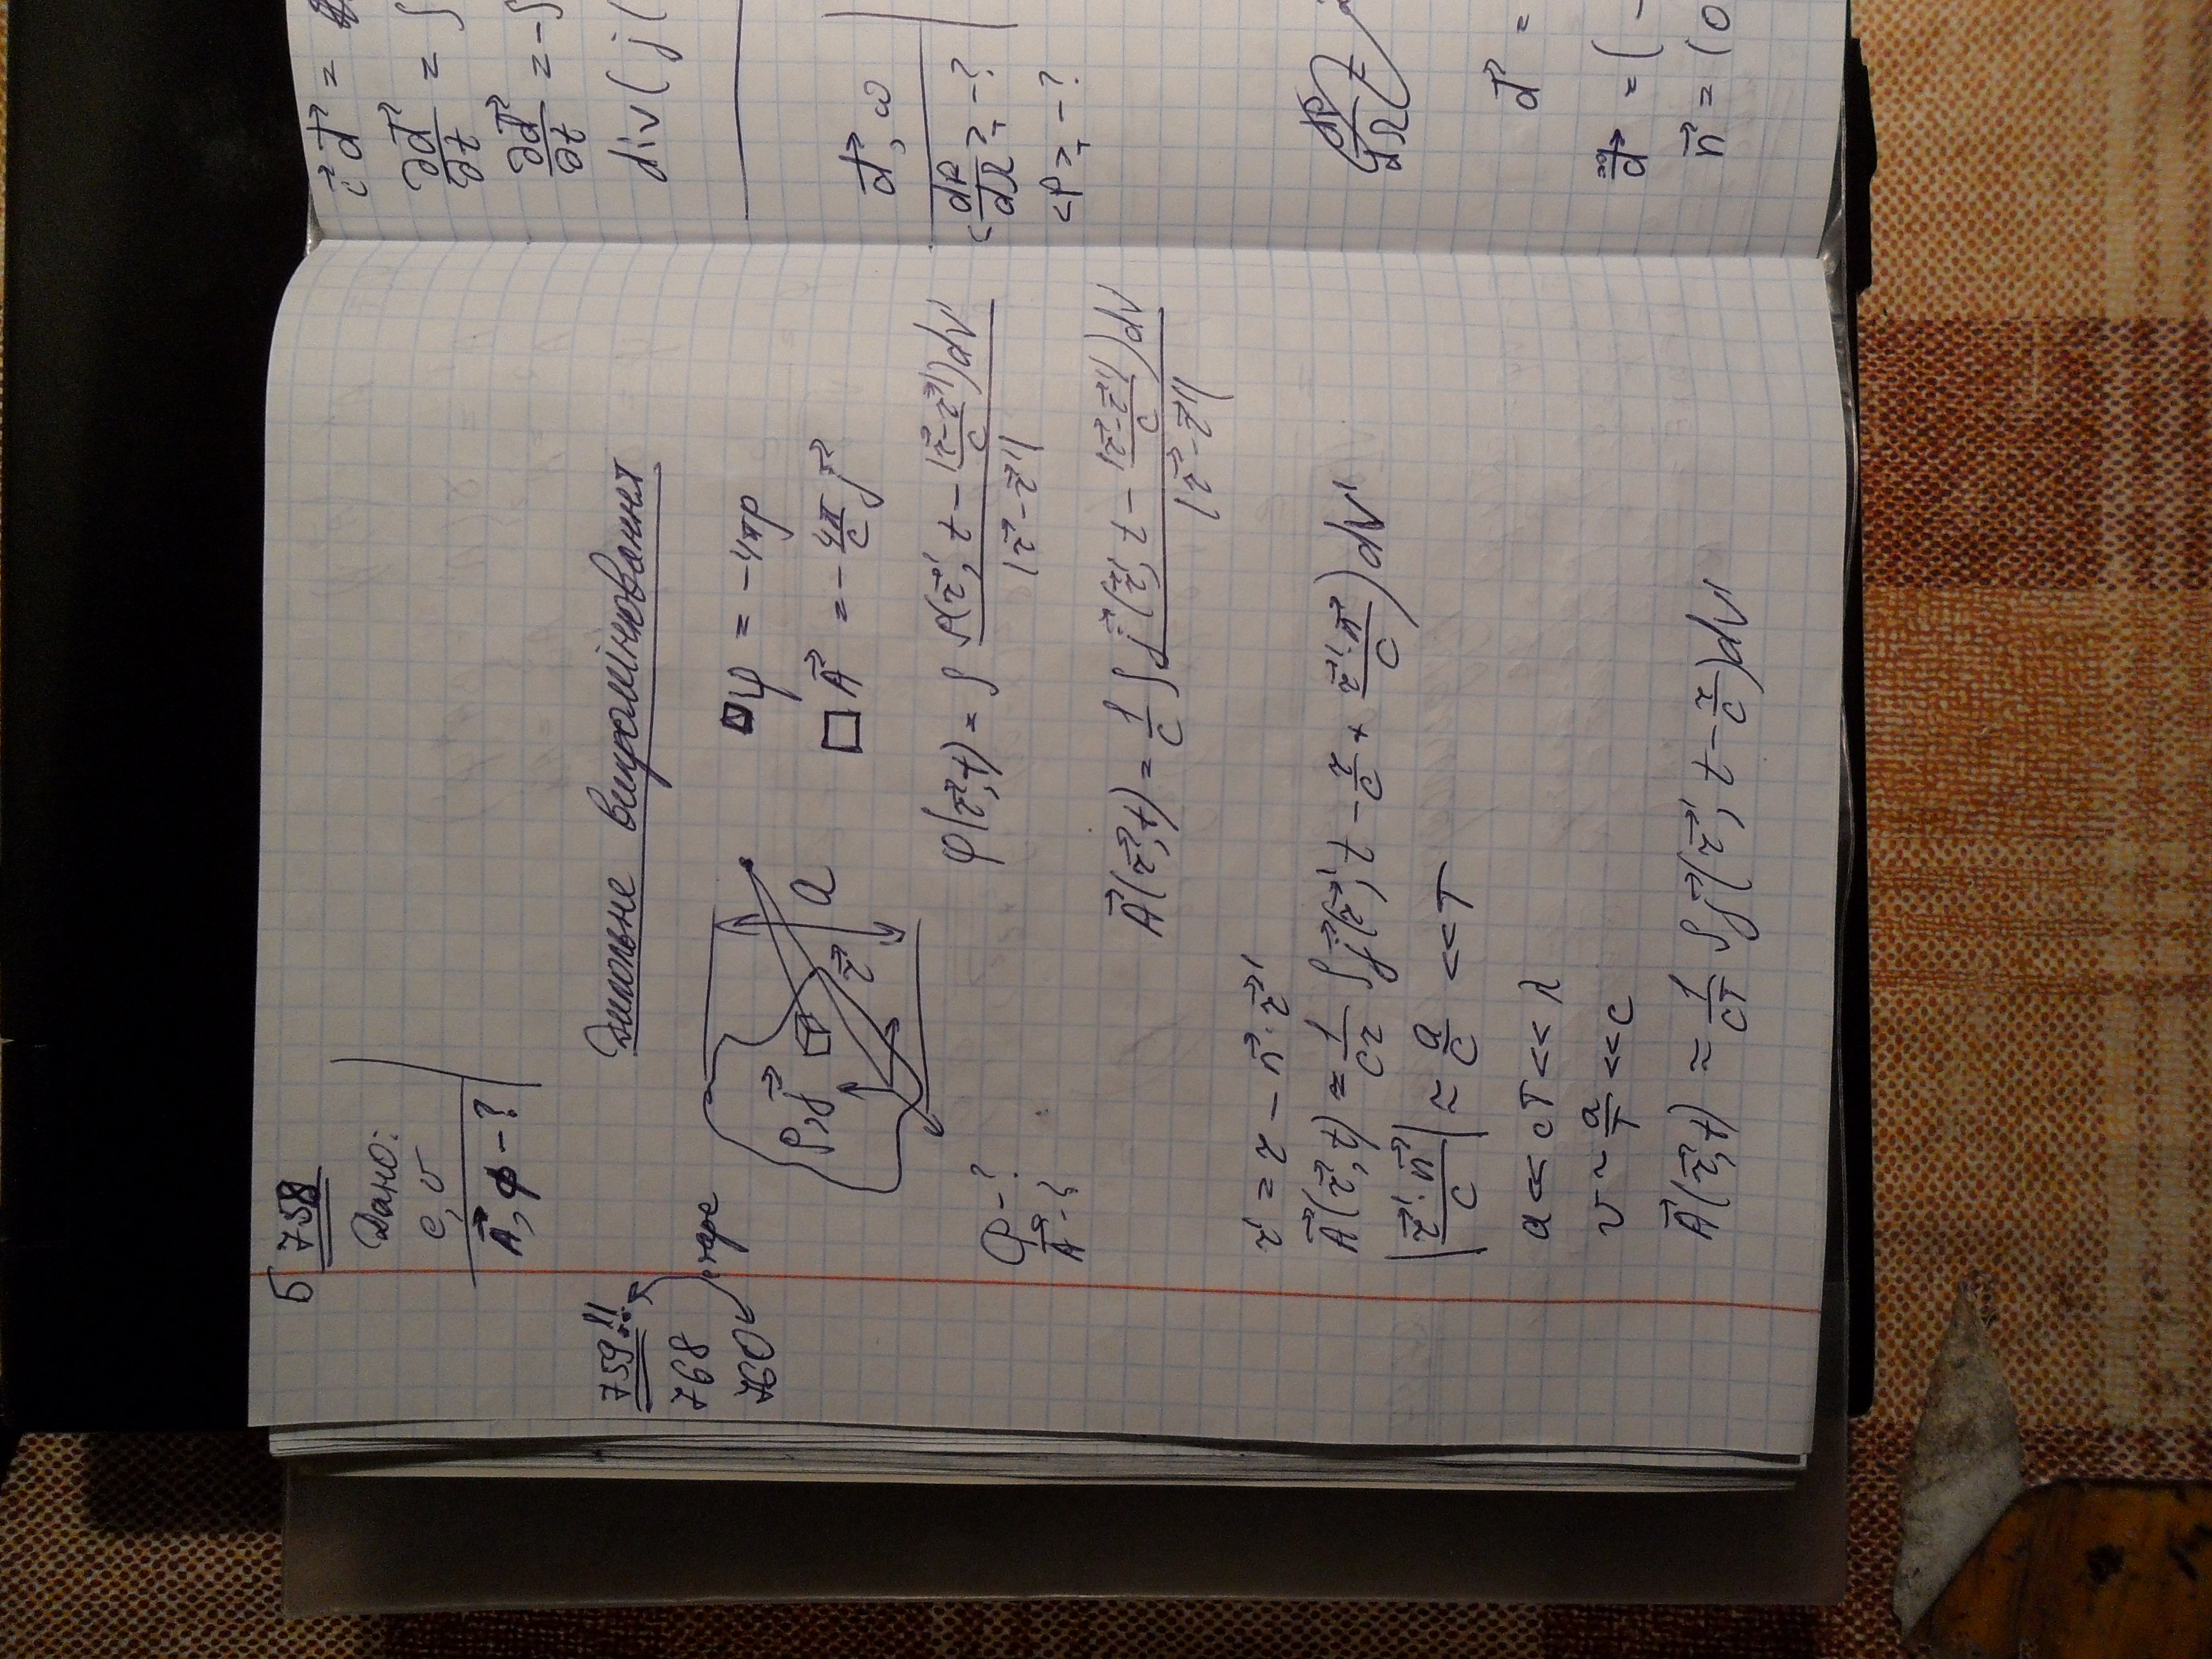 Б 758
Дано:
e, v
A⃗, φ - ?
Дипольне випромінювання
759!!
768
760
ρ, j⃗
a
r⃗
□φ = -4πρ
□A⃗ = -4π/c j⃗
φ - ?
A⃗ - ?
φ(r⃗,t) = ∫ρ(r⃗', t - |r⃗-r⃗'|/c)dV' / |r⃗-r⃗'|
A⃗(r⃗,t) = 1/c ∫j⃗(r⃗', t - |r⃗-r⃗'|/c)dV' / |r⃗-r⃗'|
r' = r - n⃗·r⃗'
A⃗(r⃗,t) ≈ 1/cr ∫j⃗(r⃗', t - r/c + r⃗'·n⃗/c)dV'
|r⃗'·n⃗/c| ≈ a/c << T
a << cT << λ
v ~ a/T << c
A⃗(r⃗,t) ≈ 1/cr ∫j⃗(r⃗', t - r/c)dV'
d⃗ =
∂d⃗/∂t = ∫
∂d⃗/∂t = -∫
div(j(
d⃗, ω
<dP/dΩ>_T - ?
<P>_T - ?
d⃗ =
d⃗̈ = (-
n⃗ = (0